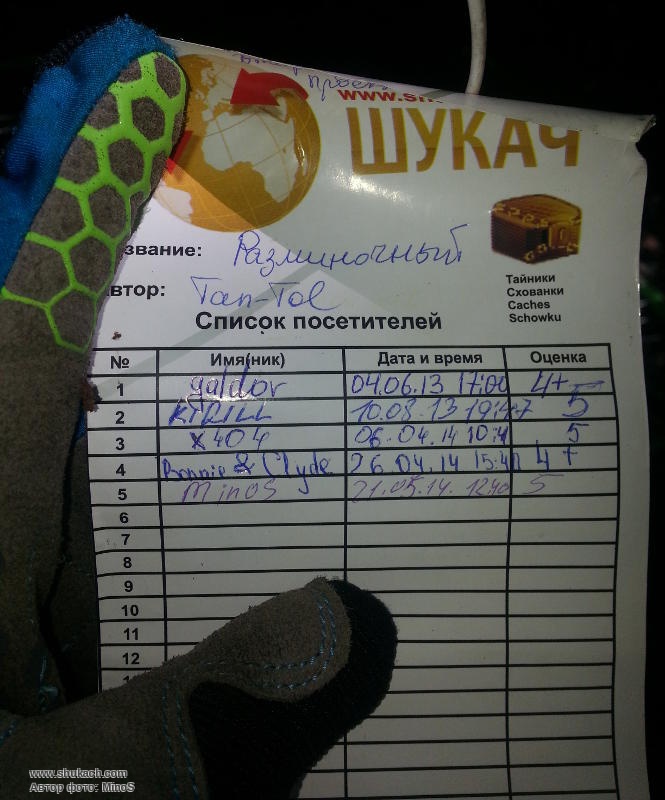 ШУКАЧ
звание: Разминочный
втор: Tan-Tol
Тайники
Схованки
Caches
Schowku
Список посетителей
№ Имя(ник) Дата и время Оценка
1 galdor 04.06.13 17:00 4+
2 19:47 5
3 x404 06.04.14 5
4 Bonnie & Clyde 26.04.14 4+
5 MinoS 21.05.14. 12:40 5
6
7
8
9
10
11
12
www.shukach.com
Автор фото: MinoS